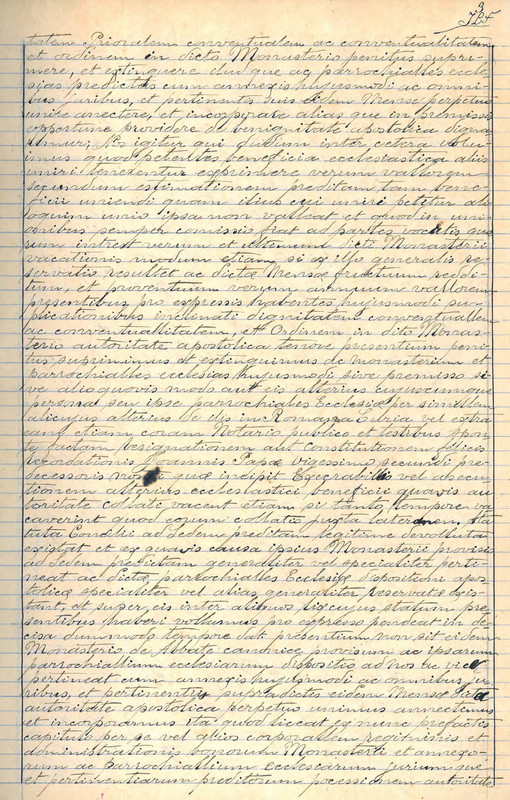 3
tatem Prioralem conventualem ac conventualitatem
et ordinem in dicto Monasterio penitus supri-
mere, et extinguere illud que ac parrochialles eccle
sias predictas cum annexis hujusmodi ac omni
bus juribus, et pertinentis suis eidem Mense perpetuo
unire anectere, et incorporate alias que in premissis
opportune providere de benignitate apostolica digna
remur; Nos igitur qui dudum inter cetera volu-
imus quod petentes beneficia ecclesiastica aliis
uniri tenerentur exprimere verum vallorem
secundum estimationem preditam tam bene
ficii uniendi quam illius cui uniri petitur ali
oquim unio ipsa non valleat et quod in uni
onibus semper comissio fiat ad partes vocatis quo
rum intrest verum et ultimum dicti Monasterii
vacationis modum etiam si ex illo generalis re-
servatis resultet ac dictæ Mensæ fructuum reddi-
tum, et proventuum verum annuum vallorem
presentibus pro expressis habentes hujusmodi su-
plicationibus inclinati dignitatem conventuallem
ac conventuallitatem, et Ordinem in dito Monas-
terio autoritate apostolica tenore presentium peni
tus suprimimus et extinguimus de monasterium et
parrochialles ecclesias hujusmodi sive premisso si-
ve alio quovis modo aut eis alterius cujuscumque
personas seu ipse parrochiales Ecclesiæ per similem
alicujus alterius de dys in Romana Curia vel extra
eam etiam coram Notario publico et testibus spon
te factam resignationem aut Constitutionem felicis
recordationis Joannis Papæ vigessimo secundi pre-
decessoris nostri quæ incipit Execrabillis vel absecu
tionem alterius ecclesiastici beneficii quavis au
toritate collati vacent etiam si tanto tempore va
caverint quod eorum collatio juxta lateranem. sta
tuta Concillii ad Sedem preditam legitime devolluta
existat et ex quavis causa ipsius Monasterii proviso
ad Sedem predictam generaliter vel specialiter perti-
neat ac dictæ parrochialles Ecclesiæ dispositioni apos
tolicæ specialiter vel alias generaliter reservatæ exis
tant, et super eis inter aliquos lis cujus statum pre
sentibus haberi vollumus pro expresso pendeat in de
cisa dummodo tempore dat. presentium non sit eidem
Monasterio de Abbate canonice provisum ac ipsarum
parrochiallium ecclesiarum dispositio ad nos ea vice
pertineat cum annexis hujusmodi ac omnibus ju
ribus, et pertinentiis supradictis eidem Mensæ dicta
autoritate apostolica perpetuo unimus annectimus
et incorporamus ita quod liceat ex nunc prefactis
capitulo per se vel alios corporallem regiminis et
administrationis bonorum Monasterii et annexo-
rum ac Parrochiallium ecclesiarum jurium que
et pertinentiarum preditorum pocessionem autoritate